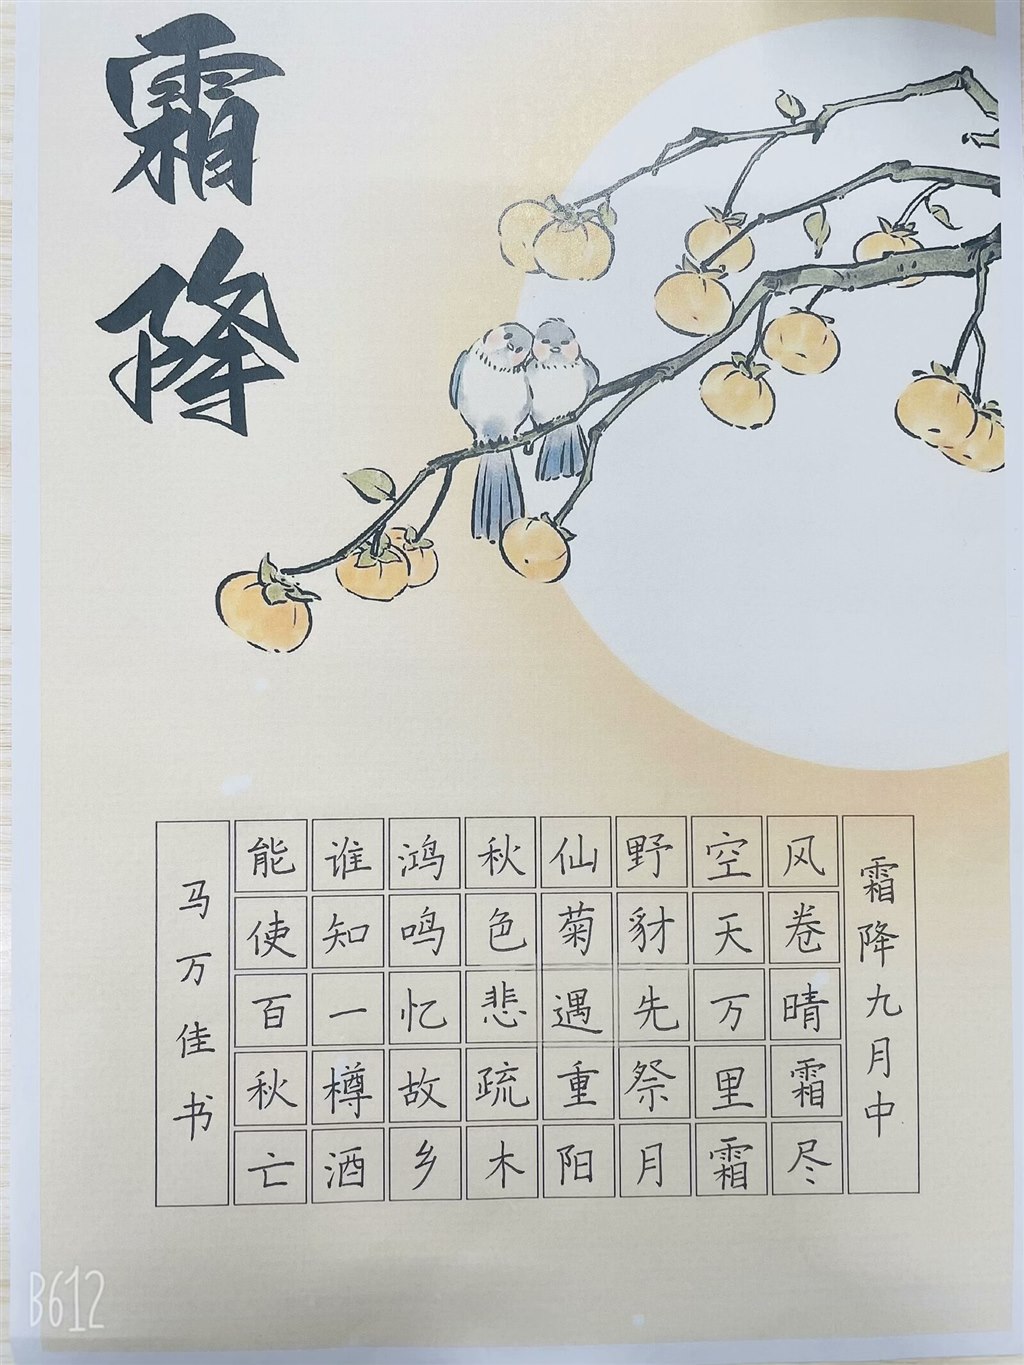 霜降
霜降九月中
风卷晴霜尽
空天万里霜
野豺先祭月
仙菊遇重阳
秋色悲疏木
鸿鸣忆故乡
谁知一樽酒
能使百秋亡
马万佳书
B612